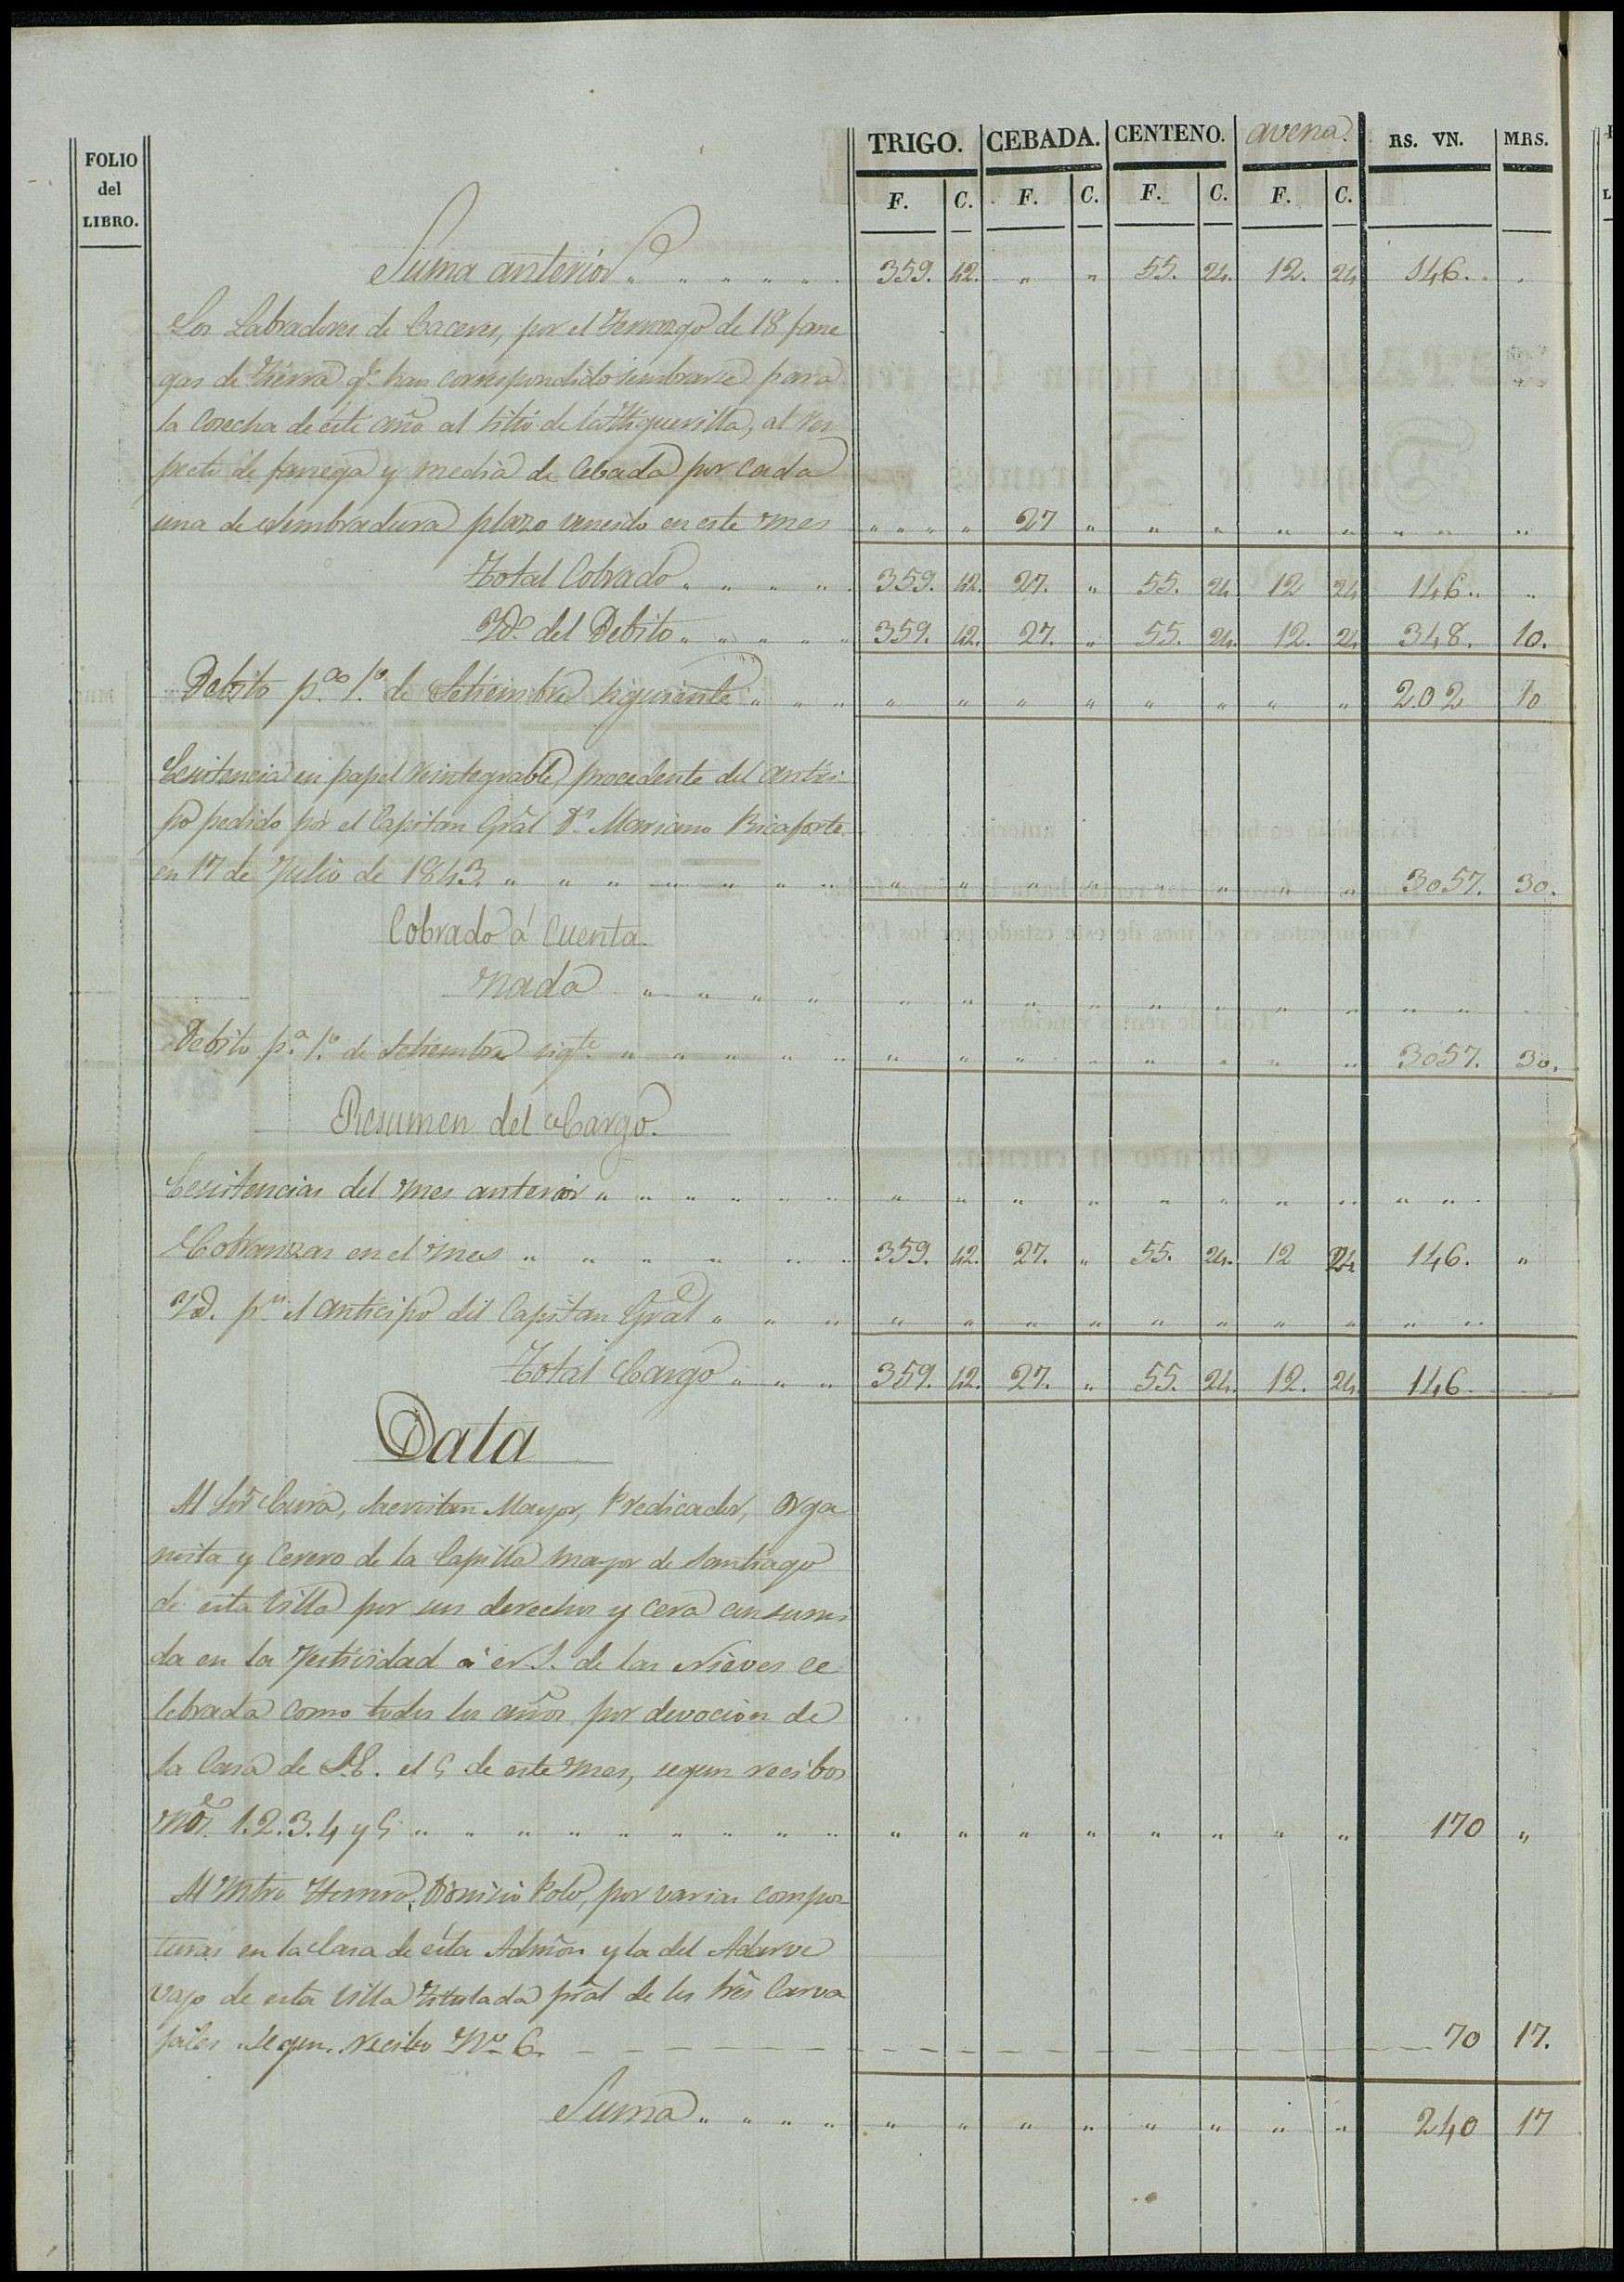 FOLIO del LIBRO.
TRIGO. CEBADA. CENTENO. avena. RS. VN. MRS.
F. C. F. C. F. C. F. C.
Suma anterior " " " " " 359. 42. " " 55. 24. 12. 24 146. "
Los Labradores de Caceres, por el terrazgo de 18 fane
gas de tierra q.e han correspondido sembrarse para
la Cosecha de este año al sitio de la Higuerilla, al res
pecto de fanega y media de Cebada por cada
una de sembradura plazo vencido en este mes " " " " 27 " " " " " " " "
Total Cobrado " " " " 359. 42. 27. " 55. 24 12 24 146. "
Yd.º del Debito " " " " " 359. 42. 27. " 55. 24. 12. 24 348. 10.
Debito p.a 1.º de Setiembre siguiente " " " " " " " " " " " 202 10
Ecsistencia en papel reintegrable, procedente del antici
po pedido por el Capitan Gral D.n Mariano Ricaforte
en 17 de Julio de 1843. " " " " " " " " " " " " " " " 3057. 30.
Cobrado á Cuenta
Nada " " " " " " " " " " " " " "
Debito p.a 1.º de Setiembre sig.te " " " " " " " " " " " " " 3057. 30.
Resumen del Cargo.
Ecsistencias del mes anterior " " " " " " " " " " " " " " " "
Cobranzas en el mes " " " " " " 359. 42. 27. " 55. 24. 12 24 146. "
Yd. p.r el anticipo del Capitan Gral " " " " " " " " " " " " "
Total Cargo " " " 359. 42. 27. " 55. 24. 12. 24. 146
Data
Al Sór Cura, Sacristan Mayor, Predicador, Orga
nista y Cerero de la Capilla mayor de Santiago
de esta Villa por sus derechos y cera consumi
da en la festividad a N. S. de las Nieves ce
lebrada como todos los años por devocion de
la Casa de S.E. el 5 de este mes, segun recibos
Nos. 1. 2. 3. 4 y 5 " " " " " " " " " " " " " " " " " 170 "
Al Mtro Herrero, Dionisio Polo, por varias compos
turas en la Casa de ésta Admón y la del Adarve
vajo de esta Villa titulada prál de los tres Carva
jales segun recibo Nº 6. 70 17.
Suma " " " " " " " " " " " " 240 17